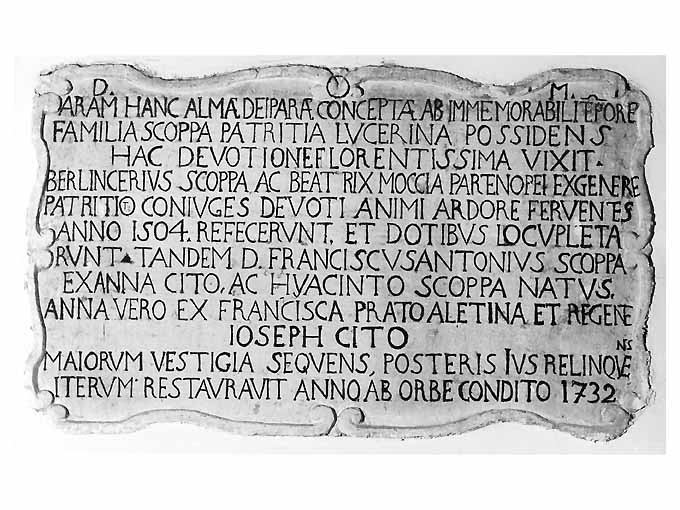 D. O. M.
ARAM HANC ALMÆ DEIPARÆ CONCEPTÆ AB IMMEMORABILI TĒPORE
FAMILIA SCOPPA PATRITIA LVCERINA POSSIDENS
HAC DEVOTIONE FLORENTISSIMA VIXIT.
BERLINCERIVS SCOPPA AC BEATRIX MOCCIA PARTENOPEI EX GENERE
PATRITIO CONIVGES DEVOTI ANIMI ARDORE FERVENTES
ANNO 1504. REFECERVNT, ET DOTIBVS LOCVPLETA
RVNT▲TANDEM D. FRANCISCVS ANTONIVS SCOPPA
EX ANNA CITO, AC HYACINTO SCOPPA NATVS,
ANNA VERO EX FRANCISCA PRATO ALETINA, ET REGENE
IOSEPH CITO
MAIORVM VESTIGIA SEQVENS, POSTERIS IVS RELINQVENS
ITERVM RESTAVRAVIT ANNO AB ORBE CONDITO 1732